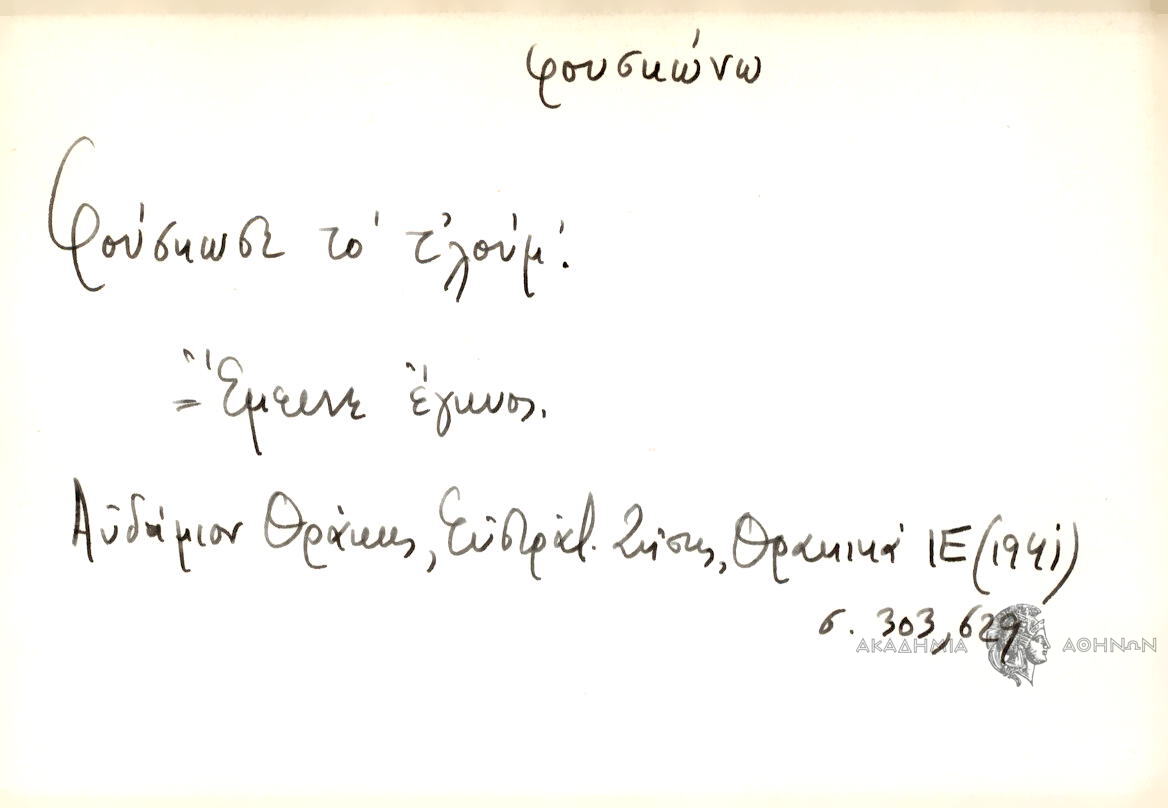 φουσκώνω
Φούσκωσε το' τ'λούμ'.
= Ἔμεινε ἔγκυος.
Αὐδήμιον Θράκης, Εὐστράτ. Ζήσης, Θρακικά ΙΕ (1941)
σ. 303, 629
ΑΚΑΔΗΜΙΑ ΑΘΗΝΩΝ